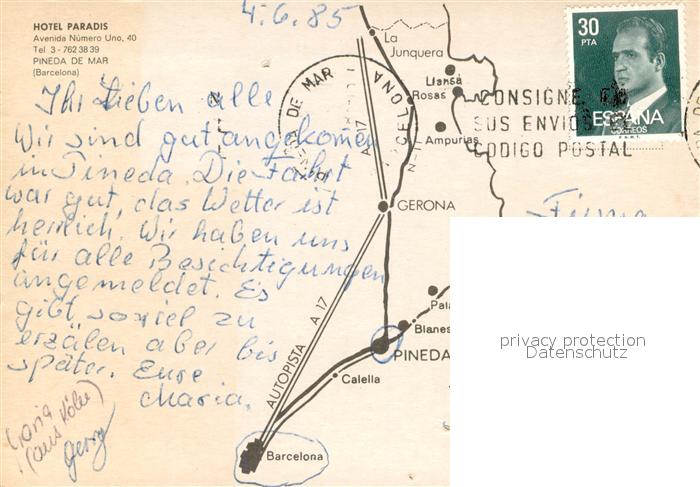 4.6.85
HOTEL PARADIS
Avenida Número Uno, 40
Tel 3 - 762 38 39
PINEDA DE MAR
(Barcelona)
Ihr Lieben alle
Wir sind gut angekommen
in Pineda. Die Fahrt
war gut, das Wetter ist
herrlich. Wir haben uns
für alle Besichtigungen
angemeldet. Es
gibt soviel zu
erzälen aber bis
später. Eure
Maria.
Georg
La
Junquera
Llansa
Rosas
Ampurias
A 17
GERONA
Blanes
PINEDA
Calella
AUTOPISTA A 17
Barcelona
DE MAR
CELONA
CONSIGNE EN
SUS ENVIOS
CODIGO POSTAL
30
PTA
ESPAÑA
CORREOS
Firma
privacy protection
Datenschutz